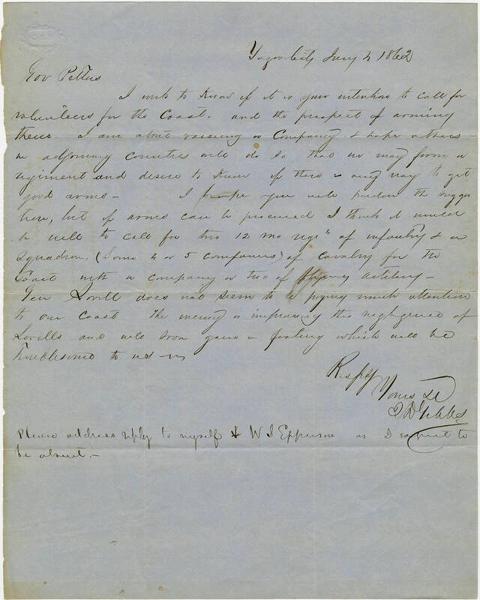 Yazoo City Jany 4 1862
Gov Pettus
I write to know if it is your intention to call for
volunteers for the Coast. and the prospect of arming
them. I am about raising a Company & hope others
in adjoining counties will do so that we may form a
regiment and desire to know if there is any way to get
good arms— I hope you will pardon the sugges
tion, but if arms can be procured I think it would
be well to call for two 12 mo regts of infantry & a
Squadron, (Some 4 or 5 companies) of cavalry for the
Coast with a company or two of flying artillery—
Gen Lovell does not seem to be paying much attention
to our Coast the enemy is improving this negligence of
Lovells and will soon gain a footing which will be
troublesome to us
Respy
Yours &c
Please address reply to myself & W S Epperson as I expect to
be absent.—